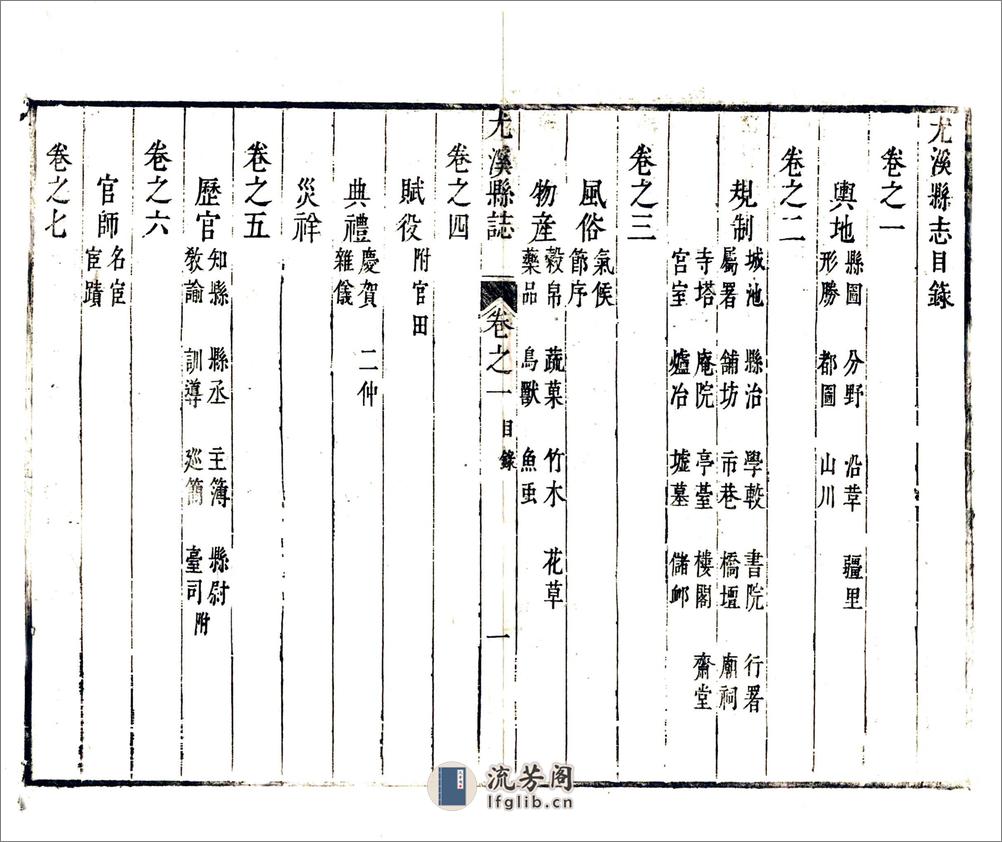 尤溪縣志目錄
卷之一
輿地 縣圖 分野 沿革 疆里
形勝 都圖 山川
卷之二
規制 城池 縣治 學較 書院 行署
屬署 舖坊 市巷 橋壇 廟祠
寺塔 庵院 亭臺 樓閣 齋堂
宮室 爐冶 墟墓 儲卹
卷之三
風俗 氣候
節序
物産 穀帛 蔬菓 竹木 花草
藥品 鳥獸 魚虫
尤溪縣誌 卷之一 目錄 一
卷之四
賦役 附官田
典禮 慶賀 二仲
雜儀
災祥
卷之五
歷官 知縣 縣丞 主簿 縣尉
敎諭 訓導 廵簡 臺司附
卷之六
官師 名宦
宦蹟
卷之七
流芳阁
lfglib.cn